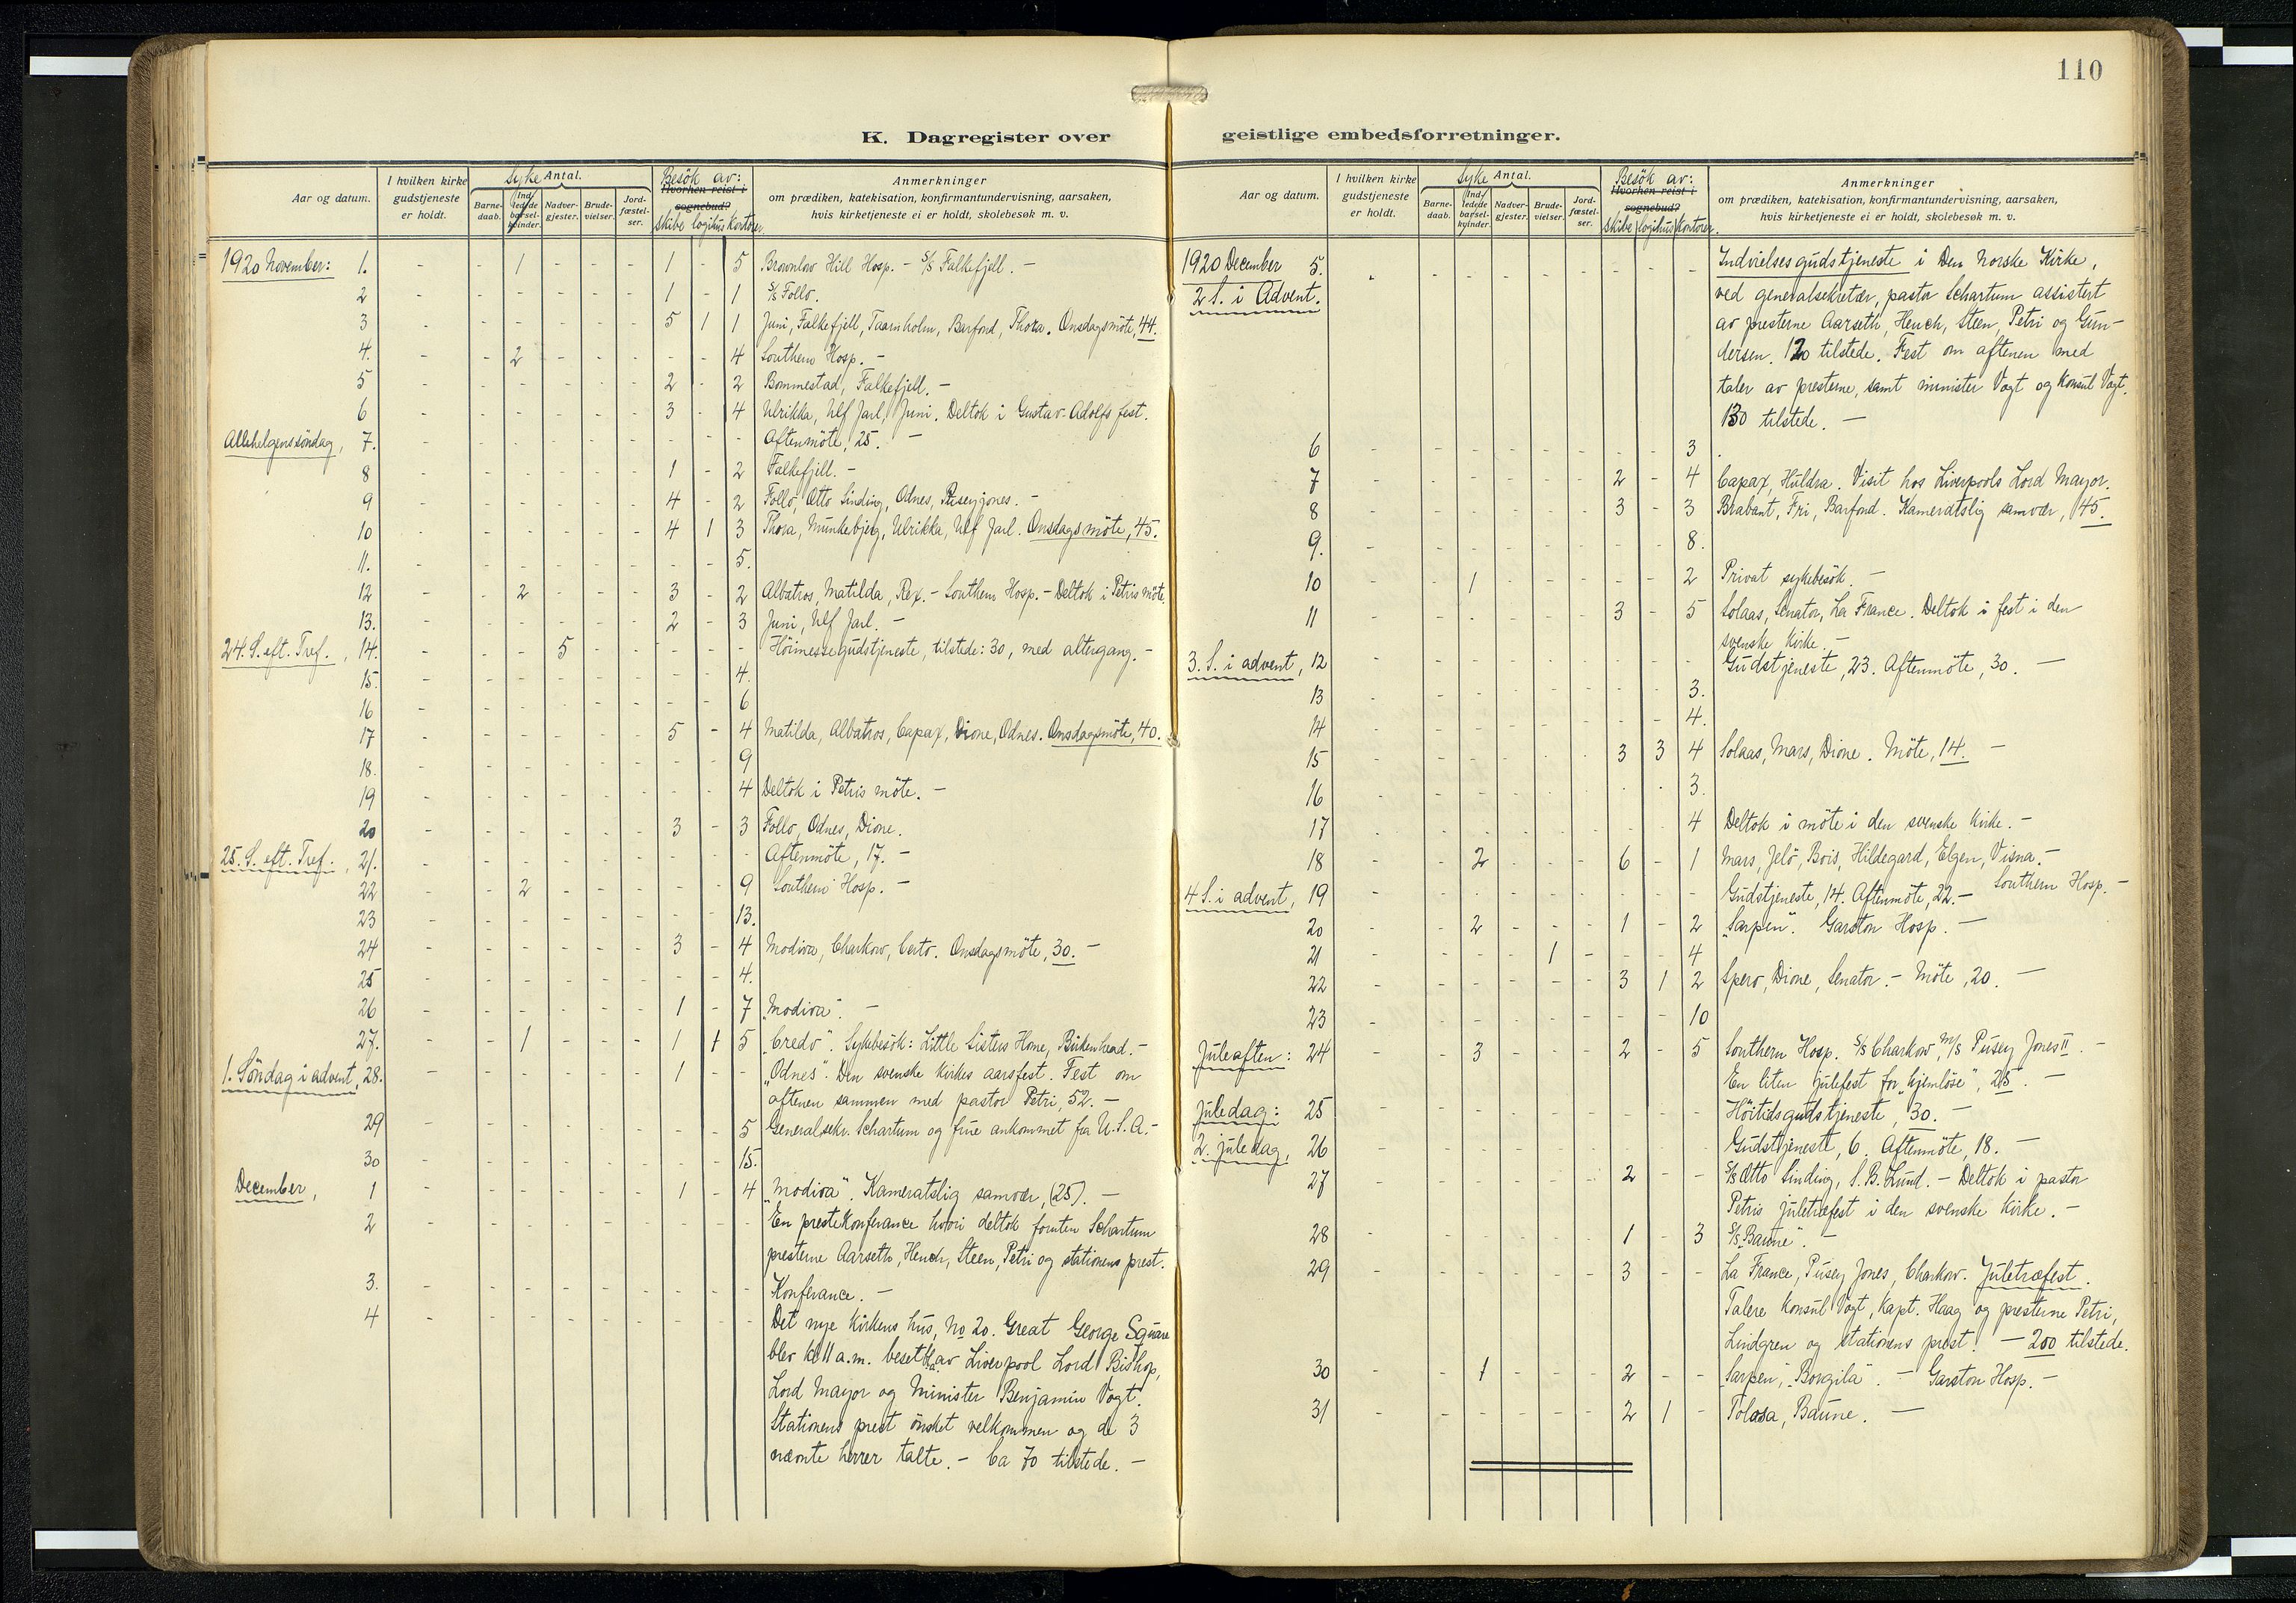 110
K. Dagregister over geistlige embedsforretninger.
Aar og datum. I hvilken kirke gudstjeneste er holdt. Syke Antal. Barne-daab. Ind-ledede barsel-kvinder. Nadver-gjester. Brude-vielser. Jord-fæstel-ser. Besök av: Hvorhen reist i sognebud? Skibe logihus Kontorer. Anmerkninger om prædiken, katekisation, konfirmantundervisning, aarsaken, hvis kirketjeneste ei er holdt, skolebesøk m. v.
1920 November: 1. - - 1 - - - 1 - 5 Brownlow Hill Hosp. - S/S Falkefjell. -
2 - - - - - - 1 - 1 S/S Follo.
3 - - - - - - 5 1 1 Juni, Falkefjell, Taarnholm, Barfond, Thora. Onsdagsmöte, 44.
4. - - 2 - - - - - 4 Southern Hosp. -
5 - - - - - - 2 - 2 Bommestad, Falkefjell. -
6 - - - - - - 3 - 4 Ulrikka, Ulf Jarl, Juni. Deltok i Gustav-Adolfs fest.
Allehelgenssöndag, 7. - - - - - - - - - Aftenmöte, 25. -
8 - - - - - - 1 - 2 Falkefjell. -
9 - - - - - - 4 - 2 Follo, Otto Sinding, Odnes, Puseyjones. -
10 - - - - - - 4 1 3 Thora, Munkebjerg, Ulrikka, Ulf Jarl. Onsdagsmöte, 45.
11. - - - - - - - - 5.
12 - - 2 - - - 3 - 2 Albatros, Matilda, Rex. - Southern Hosp. - Deltok i Petris möte.
13. - - - - - - 2 - 3 Juni, Ulf Jarl. -
24. S. eft. Tref., 14. - - - 5 - - - - - Höimessegudstjeneste, tilstede: 30, med altergang. -
15. - - - - - - - - 4.
16 - - - - - - - - 6
17 - - - - - - 5 - 4 Matilda, Albatros, Capax, Dione, Odnes. Onsdagsmöte, 40.
18. - - - - - - - - 9
19 - - - - - - - - 4 Deltok i Petris möte. -
20 - - - - - - 3 - 3 Follo, Odnes, Dione.
25. S. eft. Tref., 21. - - - - - - - - - Aftenmöte, 17. -
22 - - 2 - - - - - 9 Southern Hosp. -
23 - - - - - - - - 13.
24 - - - - - - 3 - 4 Modiva, Charkow, Certo. Onsdagsmöte, 30. -
25 - - - - - - - - 4.
26 - - - - - - 1 - 7 "Modiva". -
27. - - 1 - - - 1 1 5 "Credo". Sykebesök: Little Sisters Home, Birkenhead. -
1. Söndag i advent, 28. - - - - - - 1 - - "Odnes". Den svenske kirkes aarsfest. Fest om
aftenen sammen med pastor Petri, 52. -
29 - - - - - - - - 5 Generalsekr. Schartum og frue ankommet fra U.S.A. -
30 - - - - - - - - 15.
December, 1 - - - - - - 1 - 4 "Modiva". Kameratslig samvær, (25). -
2 - - - - - - - - - En prestekonferance hvori deltok foruten Schartum
presterne Aarseth, Hench, Steen, Petri og stationens prest.
3. - - - - - - - - - Konferance. -
4 - - - - - - - - - Det nye kirkens hus, No 20. Great George Square
blev kl 11 a.m. besøkt av Liverpool Lord Bishop,
Lord Mayor og Minister Benjamin Vogt.
Stationens prest önsket velkommen og de 3
nævnte herrer talte. - Ca 70 tilstede. -
Aar og datum. I hvilken kirke gudstjeneste er holdt. Syke Antal. Barne-daab. Ind-ledede barsel-kvinder. Nadver-gjester. Brude-vielser. Jord-fæstel-ser. Besök av: Hvorhen reist i sognebud? Skibe logihus Kontorer. Anmerkninger om prædiken, katekisation, konfirmantundervisning, aarsaken, hvis kirketjeneste ei er holdt, skolebesøk m. v.
1920 December 5. - - - - - - - - - Indvielsesgudstjeneste i Den Norske Kirke,
2 S. i Advent. ved generalsekretær, pastor Schartum assistert
av presterne Aarseth, Hench, Steen, Petri og Gun-
dersen. 120 tilstede. Fest om aftenen med
taler av presterne, samt minister Vogt og Konsul Vogt.
130 tilstede. -
6 - - - - - - - - 3.
7 - - - - - - 2 - 4 Capax, Huldra. Visit hos Liverpools Lord Mayor.
8 - - - - - - 3 - 3 Brabant, Fri, Barfond. Kameratslig samvær, 45.
9. - - - - - - - - 8.
10 - - 1 - - - - - 2 Privat sykebesök. -
11 - - - - - - 3 - 5 Solaas, Senator, La France. Deltok i fest i den
svenske kirke. -
3. S. i advent, 12 - - - - - - - - - Gudstjeneste, 23. Aftenmöte, 30. -
13 - - - - - - - - 3.
14 - - - - - - - - 4.
15 - - - - - - 3 3 4 Solaas, Mars, Dione. Möte, 14. -
16 - - - - - - - - 3.
17 - - - - - - - - 4 Deltok i möte i den svenske kirke. -
18 - - 2 - - - 6 - 1 Mars, Jelö, Bois, Hildegard, Elgen, Visna. - Southern Hosp. -
4 S. i advent, 19 - - - - - - - - - Gudstjeneste, 14. Aftenmöte, 22. -
20 - - 2 - - - 1 - 2 "Sarpen". Garston Hosp. -
21 - - - - 1 - - - 4
22 - - - - - - 3 1 2 Spero, Dione, Senator. - Möte, 20. -
23 - - - - - - - - 10
Juleaften: 24 - - 3 - - - 2 - 5 Southern Hosp. S/S Charkow, M/S Pusey Jones II. -
En liten julefest for "hjemlöse", 25. -
Juledag: 25 - - - - - - - - - Höitidsgudstjeneste, 30. -
2. juledag, 26 - - - - - - - - - Gudstjeneste, 6. Aftenmöte, 18. -
27 - - - - - - 2 - - S/S Otto Sinding, S. B. Lund. - Deltok i pastor
Petris juletræfest i den svenske kirke. -
28 - - - - - - 1 - 3 S/S "Baune". -
29 - - - - - - 3 - - La France, Pusey Jones, Charkow. Juletræfest.
Talere Konsul Vogt, Kapt. Haag og presterne Petri,
Lindgren og stationens prest. - 200 tilstede.
30 - - 1 - - - 2 - - "Sarpen", "Borgila". - Garston Hosp. -
31 - - - - - - 2 1 - Tolosa, Baune. -